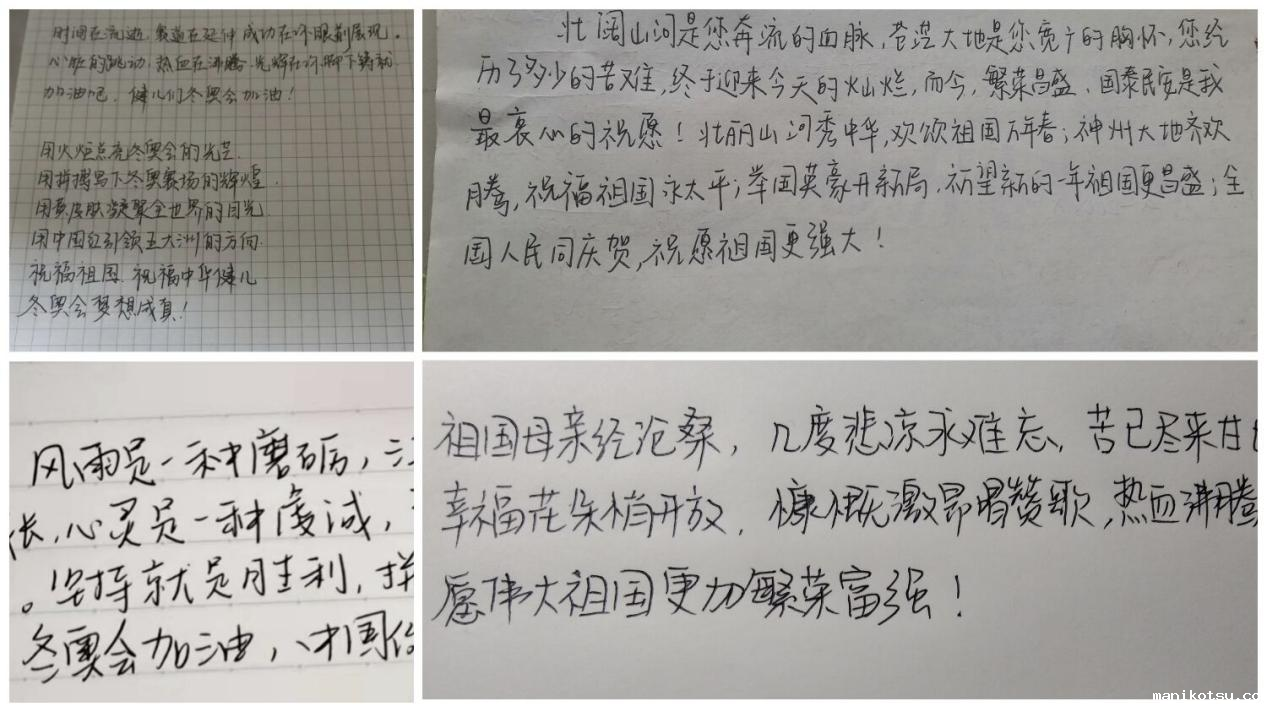 时间在流逝，赛道在延伸 成功在你眼前展现。
心脏的跳动，热血在沸腾，光辉在你脚下铸就
加油吧，健儿们冬奥会加油！
用火炬点亮冬奥会的光芒
用拼搏写下冬奥赛场的辉煌
用黄皮肤凝聚全世界的目光
用中国红引领五大洲的方向
祝福祖国，祝福中华健儿
冬奥会梦想成真！
壮阔山河是您奔流的血脉，苍茫大地是您宽广的胸怀，您经
历了多少的苦难，终于迎来今天的灿烂，而今，繁荣昌盛、国泰民安是我
最衷心的祝愿！壮丽山河秀中华，欢颂祖国万年春；神州大地齐欢
腾，祝福祖国永太平；举国英豪开新局，祈望新的一年祖国更昌盛；全
国人民同庆贺，祝愿祖国更强大！
风雨是一种磨砺，
长，心灵是一种虔诚，
。坚持就是胜利，拼
冬奥会加油，中国
祖国母亲经沧桑，几度悲凉永难忘、苦已尽来甘
幸福花朵梢开放，慷慨激昂唱赞歌，热血沸腾
愿伟大祖国更加繁荣富强！
manikotsu.co